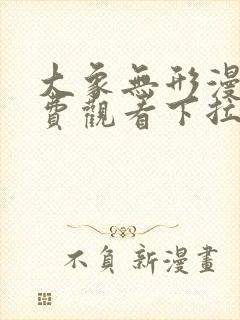 大象無形漫
費觀看下拉
不負新漫畫